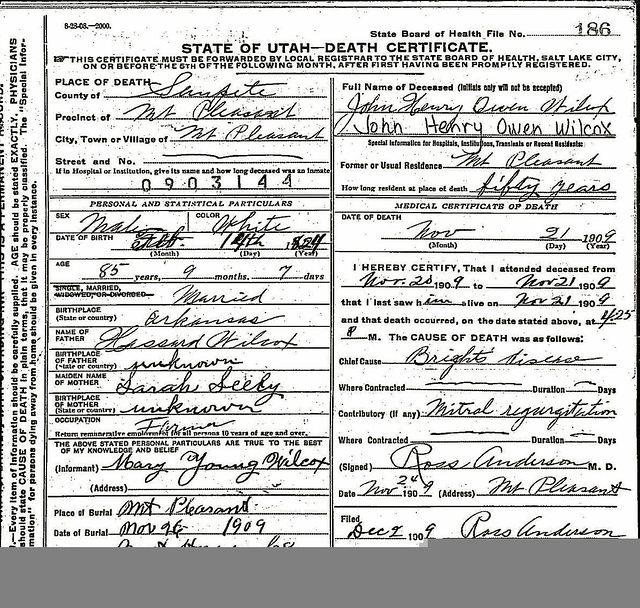 8-28-08.-2000.
State Board of Health File No. 186
STATE OF UTAH—DEATH CERTIFICATE.
THIS CERTIFICATE MUST BE FORWARDED BY LOCAL REGISTRAR TO THE STATE BOARD OF HEALTH, SALT LAKE CITY,
ON OR BEFORE THE 5TH OF THE FOLLOWING MONTH, AFTER FIRST HAVING BEEN PROMPTLY REGISTERED.
PLACE OF DEATH
County of Sanpete
Precinct of Mt Pleasant
City, Town or Village of Mt Pleasant
Street and No.
If in Hospital or Institution, give its name and how long deceased was an inmate
0903144
PERSONAL AND STATISTICAL PARTICULARS
SEX Male COLOR White
DATE OF BIRTH Feb. 14th 1824
(Month) (Day) (Year)
AGE 85 years, 9 months. 7 days
SINGLE, MARRIED,
WIDOWED, OR DIVORCED Married
BIRTHPLACE
(State or country) Arkansas
NAME OF
FATHER Hassard Wilcox
BIRTHPLACE
OF FATHER
(State or country) unknown
MAIDEN NAME
OF MOTHER Sarah Seely
BIRTHPLACE
OF MOTHER
(State or country) unknown
OCCUPATION Farmer
Return remunerative employment for all persons 10 years of age and over.
THE ABOVE STATED PERSONAL PARTICULARS ARE TRUE TO THE BEST
OF MY KNOWLEDGE AND BELIEF
(Informant) Mary Young Wilcox
(Address)
Place of Burial Mt Pleasant
Date of Burial Nov 26 1909
Full Name of Deceased (Initials only will not be accepted)
John Henry Owen Wilcox
John Henry Owen Wilcox
Special Information for Hospitals, Institutions, Transients or Recent Residents:
Former or Usual Residence Mt Pleasant
How long resident at place of death fifty years
MEDICAL CERTIFICATE OF DEATH
DATE OF DEATH
Nov 21 1909
(Month) (Day) (Year)
I HEREBY CERTIFY, That I attended deceased from
Nov. 20 1909 to Nov 21 1909
that I last saw him alive on Nov 21 1909
and that death occurred, on the date stated above, at 4.25
P M. The CAUSE OF DEATH was as follows:
Chief Cause Brights Disease
Where Contracted Duration Days
Contributory (if any) Mitral regurgitation
Where Contracted Duration Days
(Signed) Ross Anderson M. D.
Date Nov 24 1909 (Address) Mt Pleasant
Filed
Dec 2 1909 Ross Anderson
.—Every item of information should be carefully supplied. AGE should be stated EXACTLY. PHYSICIANS
should state CAUSE OF DEATH in plain terms, that it may be properly classified. The "Special Infor-
mation" for persons dying away from home should be given in every instance.